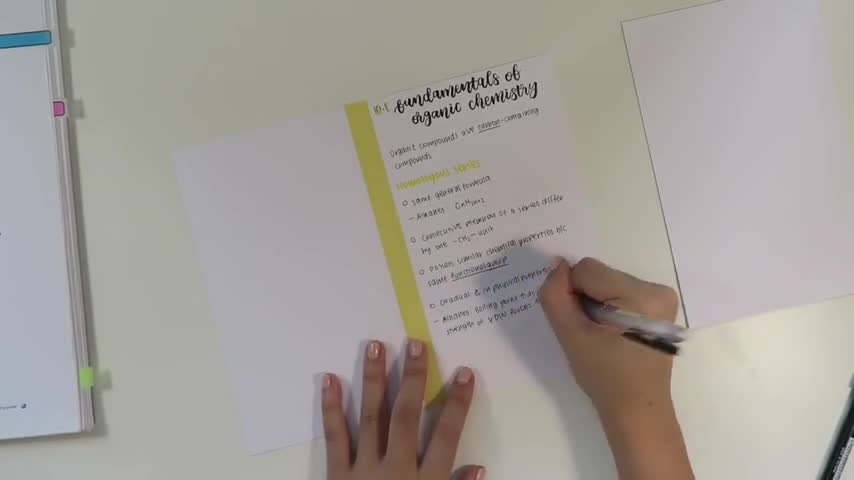 10.1 fundamentals of
organic chemistry
Organic compounds are carbon-containing
compounds
Homologous series
o same general formula
- Alkanes CnH2n+2
o Consecutive members of a series differ
by one -CH2- unit
o Posses similar chemical properties b/c
same functional group
o Gradual Δ in physical properties
- Alkanes: Boiling point ↑ as
strength of VDW forces